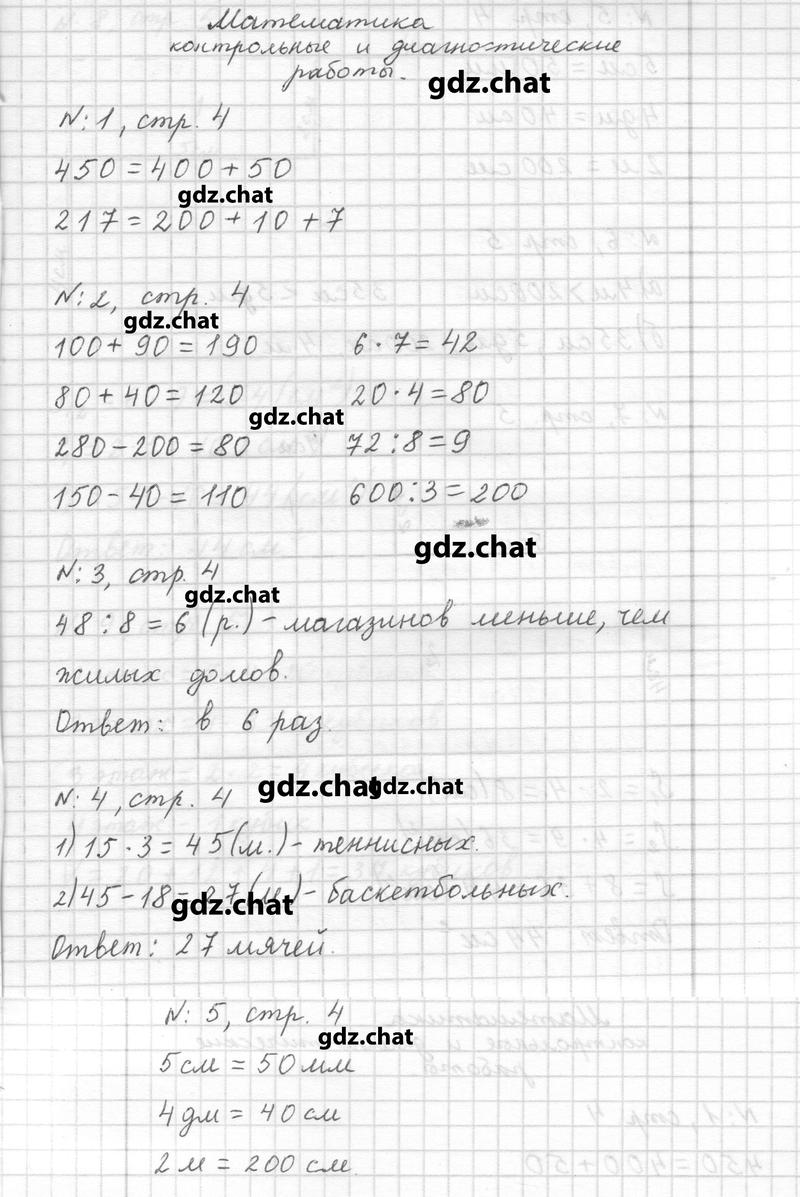 Математика
контрольные и диагностические
работы.
gdz.chat
№1, стр. 4
450 = 400 + 50
gdz.chat
217 = 200 + 10 + 7
№2, стр. 4
gdz.chat
100 + 90 = 190 6 · 7 = 42
80 + 40 = 120 20 · 4 = 80
gdz.chat
280 - 200 = 80 72 : 8 = 9
150 - 40 = 110 600 : 3 = 200
gdz.chat
№3, стр. 4
gdz.chat
48 : 8 = 6 (р.) - магазинов меньше, чем
жилых домов.
Ответ: в 6 раз.
gdz.chat gdz.chat
№4, стр. 4
1) 15 · 3 = 45 (м.) - теннисных.
2) 45 - 18 = 27 (м.) - баскетбольных.
gdz.chat
Ответ: 27 мячей.
№5, стр. 4
gdz.chat
5 см = 50 мм
4 дм = 40 см
2 м = 200 см.